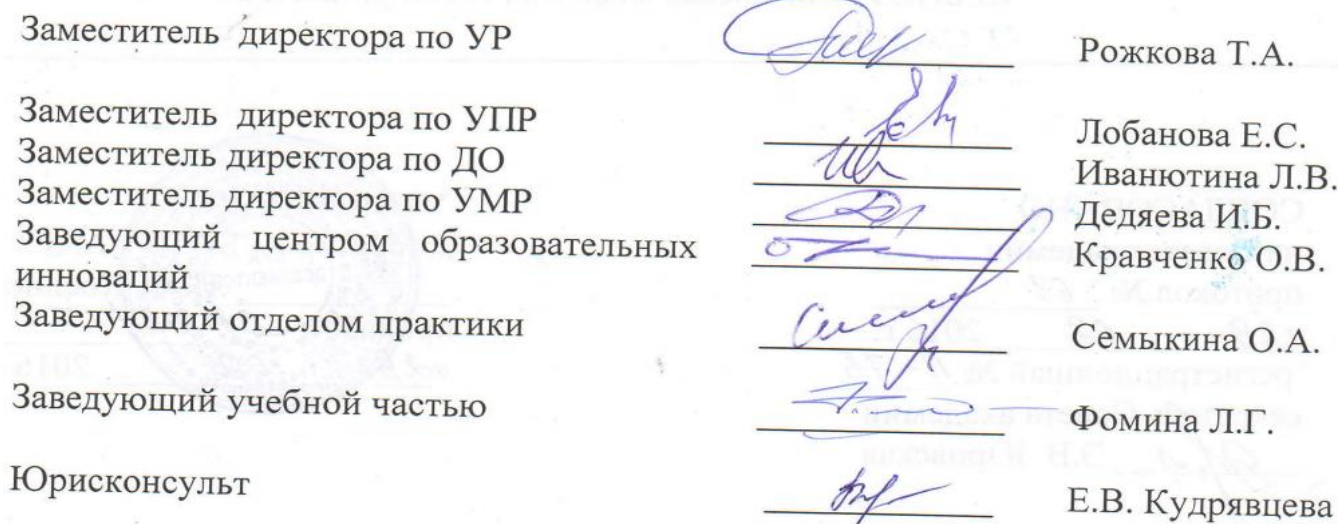 Заместитель директора по УР Рожкова Т.А.
Заместитель директора по УПР Лобанова Е.С.
Заместитель директора по ДО Иванютина Л.В.
Заместитель директора по УМР Дедяева И.Б.
Заведующий центром образовательных Кравченко О.В.
инноваций
Заведующий отделом практики Семыкина О.А.
Заведующий учебной частью Фомина Л.Г.
Юрисконсульт Е.В. Кудрявцева